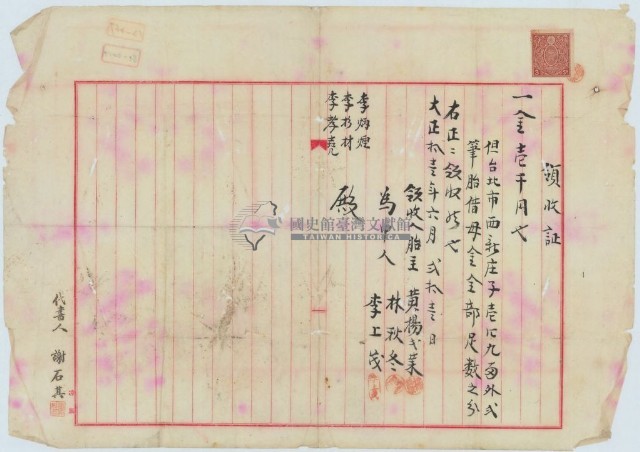 領收証
一金壹千円也
但台北市西新庄子壹〇九番外弍
筆胎借母金全部足數之分
右正ニ領收候也
大正拾壹年六月弍拾壹日
領收人胎主 黃楊氏葉
為中人 林秋冬
李上茂
李炳煌
李杉材
李孝堯
殿
代書人 謝石其
國史館臺灣文獻館
TAIWAN HISTORICA